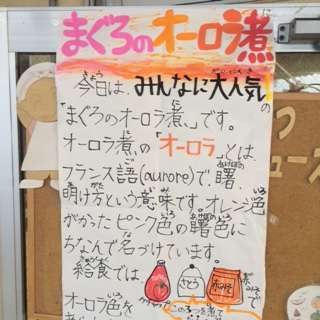 まぐろのオーロラ煮
今日は、みんなに大人気の
「まぐろのオーロラ煮」です。
オーロラ煮の「オーロラ」とは、
フランス語(aurore)で、曙、
明け方という意味です。オレンジ色
がかったピンク色の曙色に
ちなんで名づけています。
給食では、
さとう
赤みそ
オーロラ色を